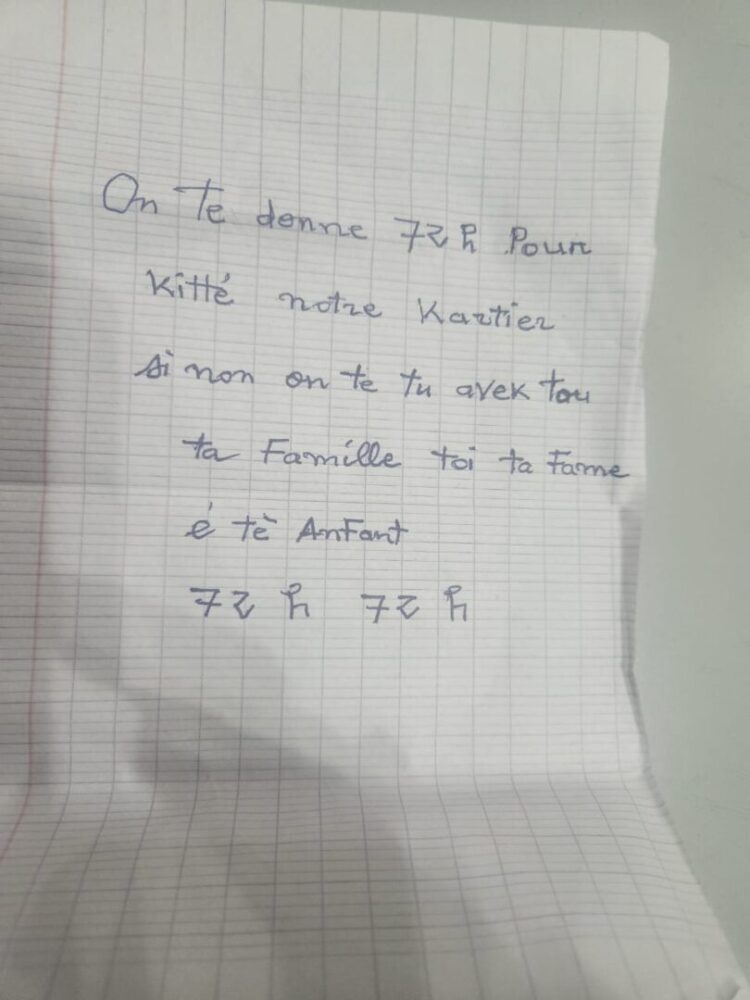 On Te donne 72 h Pour
Kitté notre Kartier
si non on te tu avek tou
ta Famille toi ta Fame
é tè AnFant
72 h 72 h